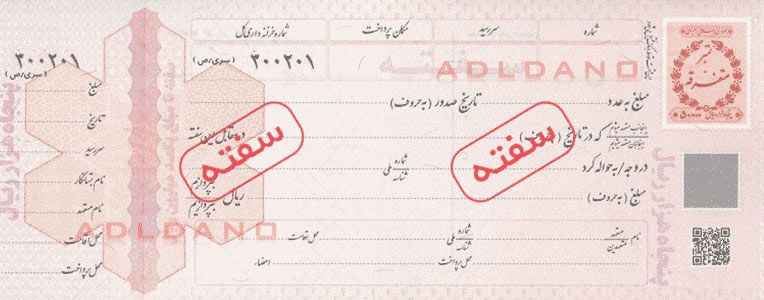 شماره سررسید مکان پرداخت شماره خزانه داری کل
۳۰۰۲۰۱ (سری/ص)
سفته
ADLDANO
مبلغ به عدد تاریخ صدور (به حروف)
که در تاریخ (به حروف) در مقابل این سفته
در وجه/به حواله کرد شماره ملی شناسه بپردازم
مبلغ (به حروف) ریال بپردازیم
نام متعهد متعهدین شماره ملی شناسه محل اقامت
محل پرداخت امضاء
۳۰۰۲۰۱
(سری/ص)
مبلغ
تاریخ
سررسید
نام بستانکار
نام متعهد
محل اقامت
محل پرداخت
سفته
سفته
ADLDANO
پنجاه هزار ریال
پنجاه هزار ریال
تمبر
متفرقه